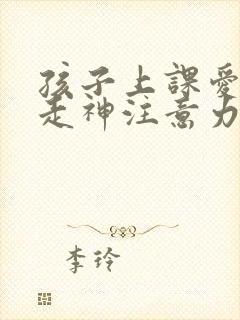 孩子上課愛
走神注意力
李玲